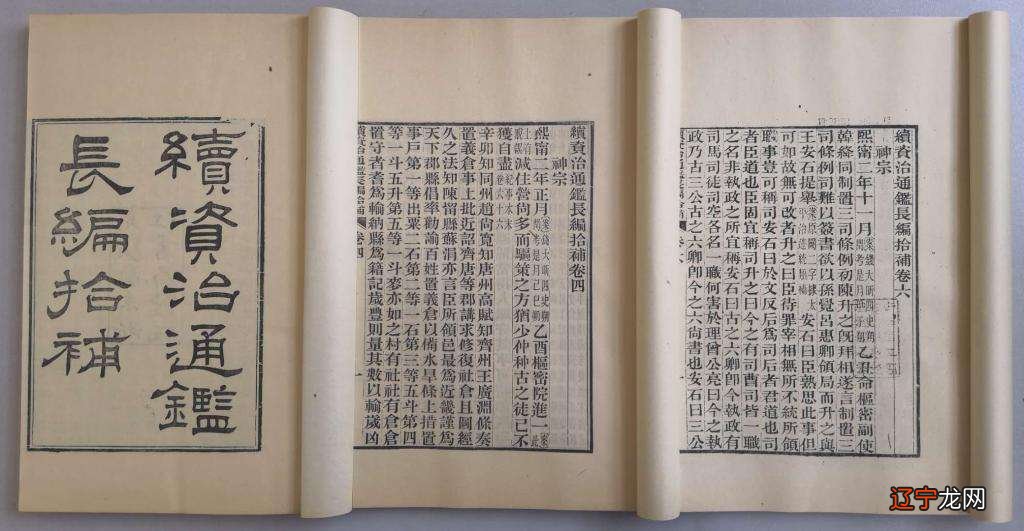 續資治通鑑
長編拾補
續資治通鑑長編拾補卷四
神宗
熙甯二年正月乙酉樞密院進一
減住營尚多而驅策之方猶少仲种古之徒已不
獲自盡紀事本末卷六十六
辛卯知同州趙尚寬知唐州高賦知齊州王廣淵條奏
置義倉事上批近詔齊唐等郡講求修復社倉且圖經
久之法知陳留縣蘇涓亦言臣所領邑最爲近畿謹爲
天下郡縣倡率勸諭百姓置義倉以備水旱條上措置
事戶第一等出粟二石第二等一石第三等五斗第四
等一斗五升第五等一斗麥亦如之村有社社有倉倉
置守者耆爲輸納縣爲籍記歲豐則量其數以輸歲凶
續資治通鑑長編拾補 卷四
續資治通鑑長編拾補卷六
神宗
熙甯二年十一月乙丑命樞密副使
韓絳同制置三司條例初陳升之既拜相遂言制置三
司條例司難以簽書欲以孫覺呂惠卿領局而升之與
王安石提舉安石曰臣熟思此事但
可如故無可改者升之曰臣待罪宰相無所不統所領
職事豈可稱司安石曰於文反后爲司后者君道也司
者臣道也臣固宜稱司升之曰今之有司曹司皆一職
之名非執政之所宜稱安石曰古之六卿卽今執政有
司馬司徒司空各名一職何害於理曾公亮曰今之執
政乃古三公古之六卿卽今之六尚書也安石曰三公
辽宁龙网